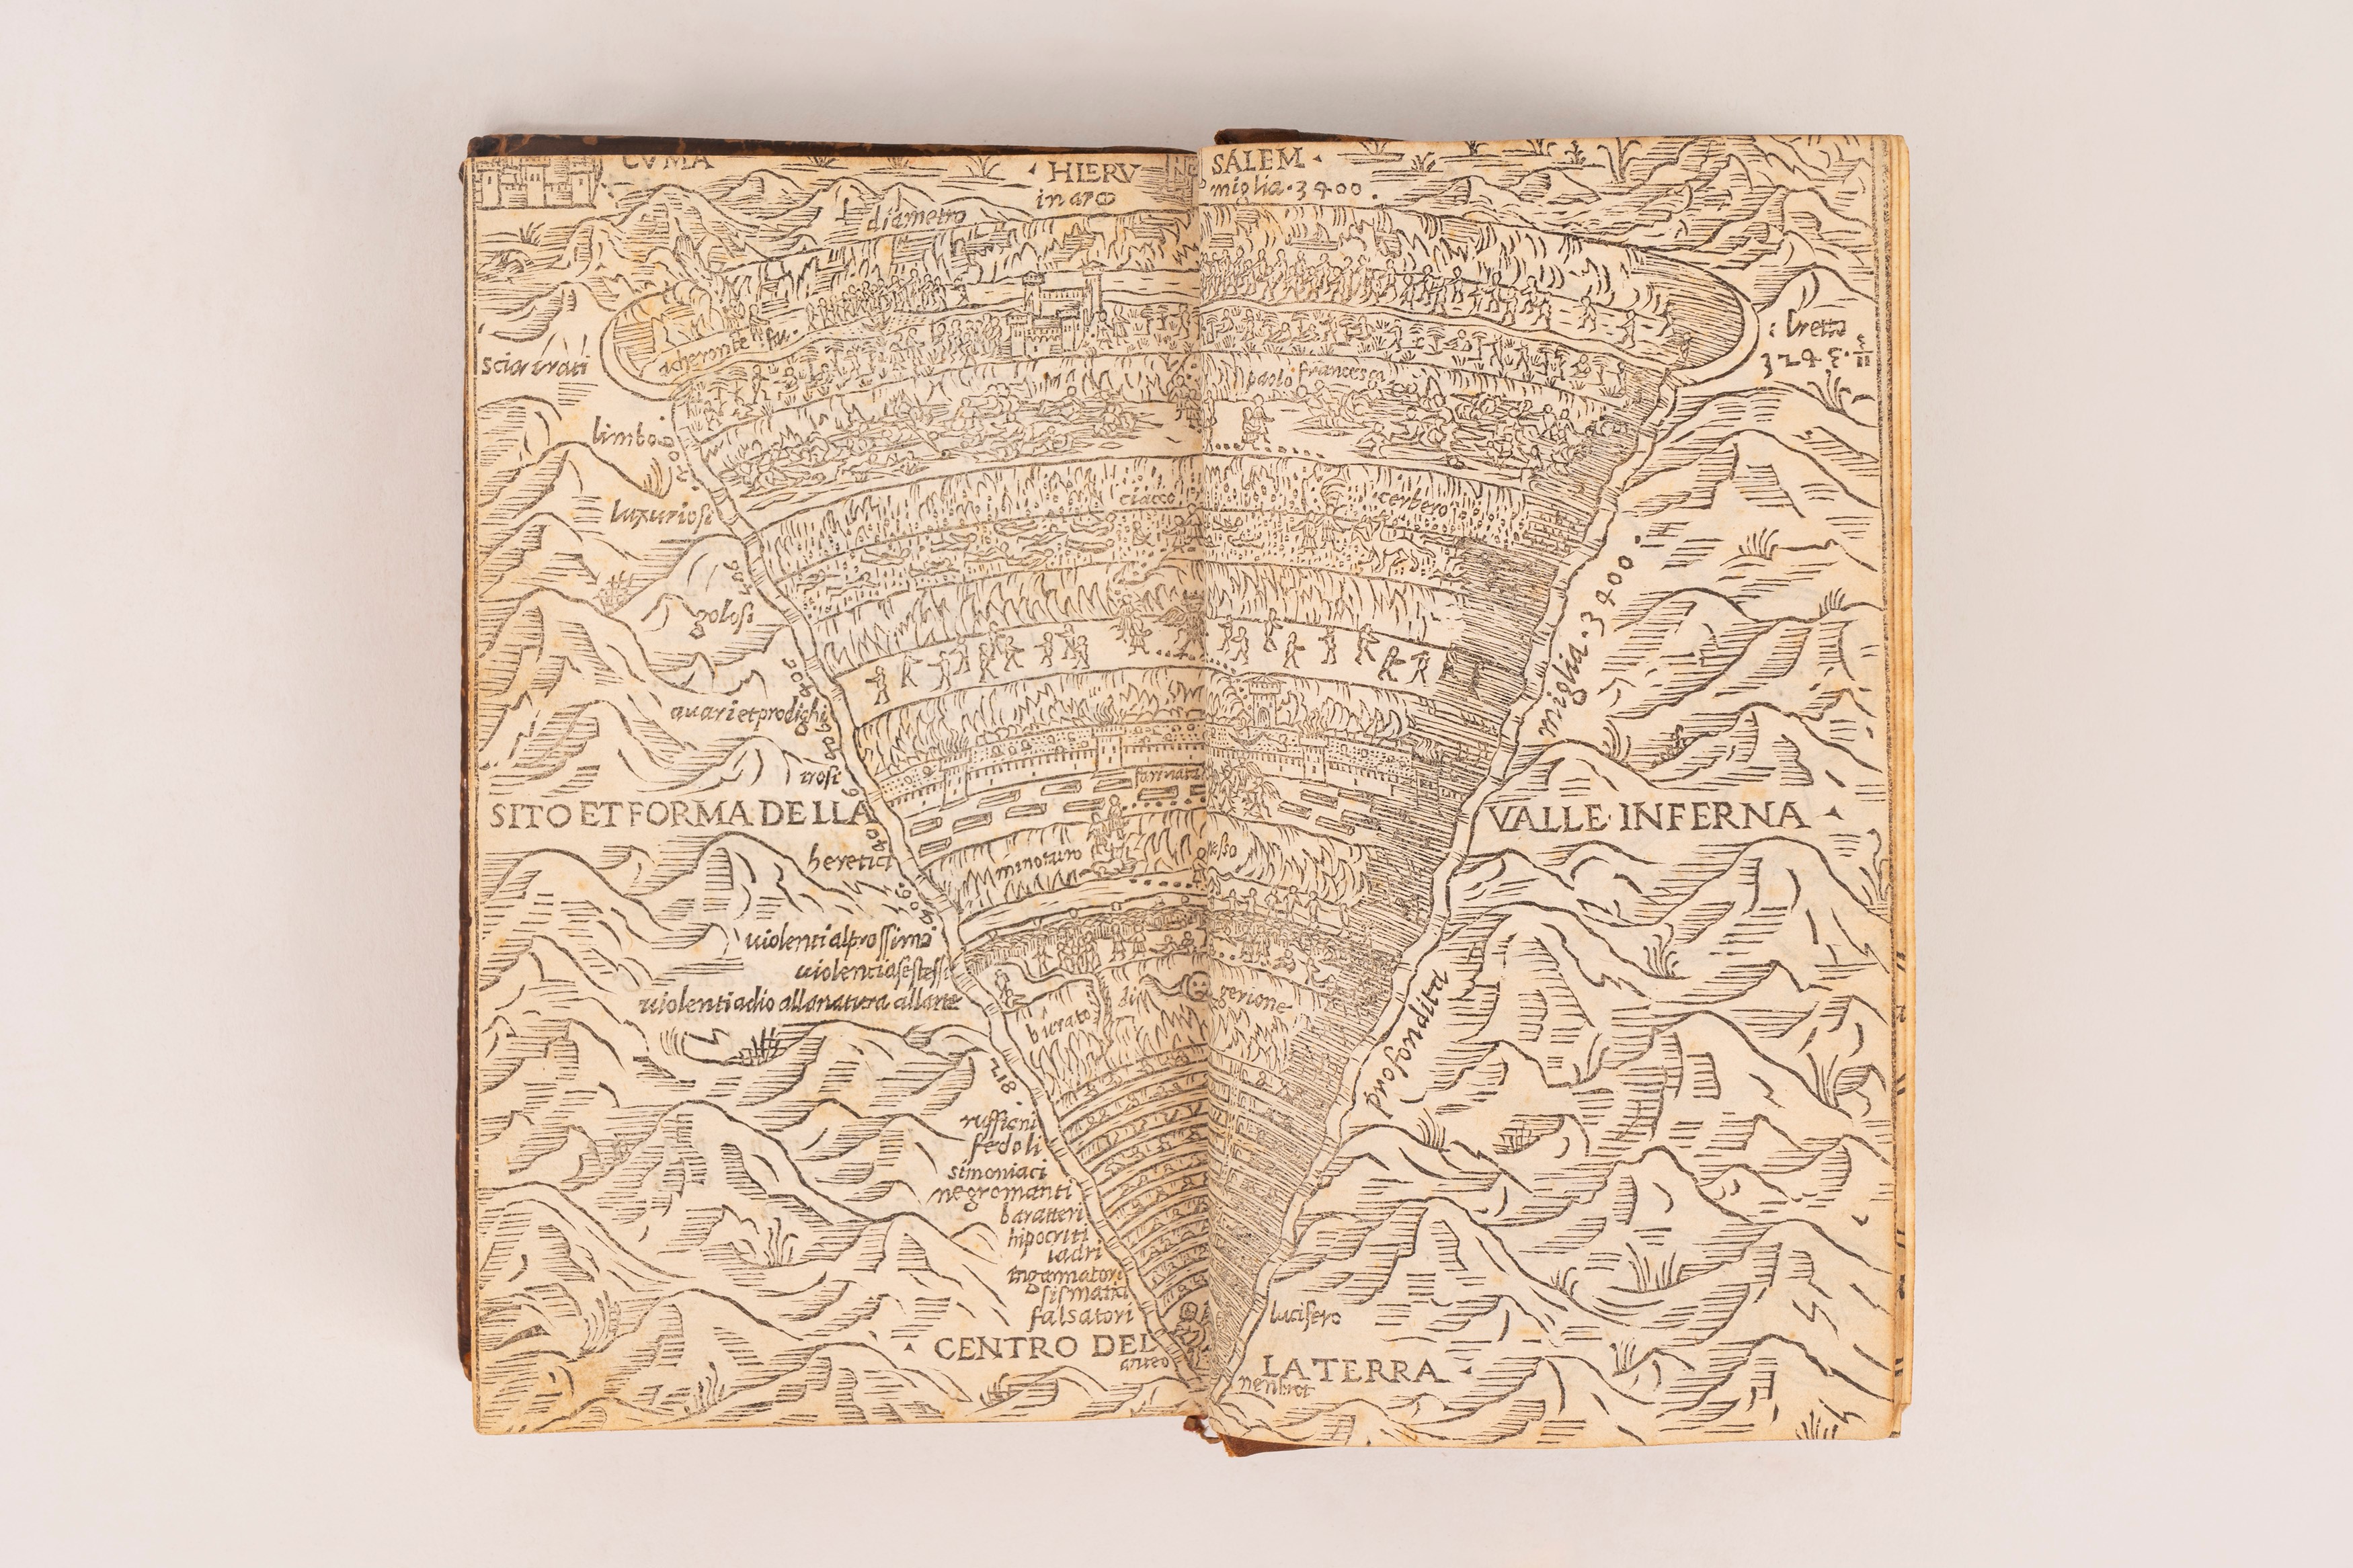 CVMA
HIERV SALEM
in arco miglia · 3400 ·
diametro
acheronte fiu.
sciaurati
: bretto
3245 · 5/11
limbo
paolo francesca
luxuriosi
ciacco
cerbero
golosi
miglia · 3400 ·
auari et prodighi
irosi
farinata
SITO ET FORMA DELLA VALLE · INFERNA
heretici
minotauro
nesso
uiolenti alprossimo
uiolenti asestessi
uiolenti adio allanatura allarte
di gerione
burrato
profondita
218
ruffiani
fedoli
simoniaci
negromanti
baratteri
hipocriti
ladri
ingannatori
sismatici
falsatori
lucifero
CENTRO DEL LA TERRA
anteo
nenbrot